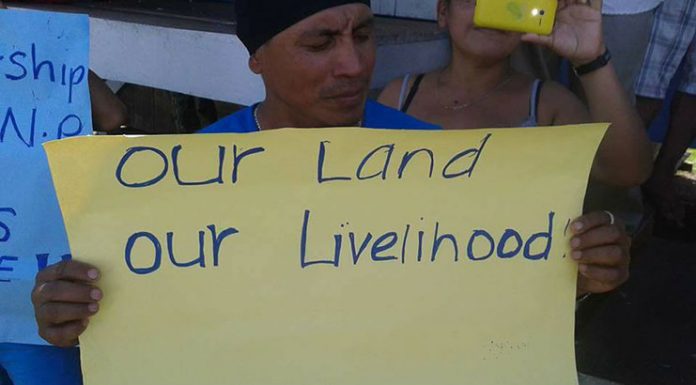 ship
N.P
OUR LAND
OUR Livelihood!